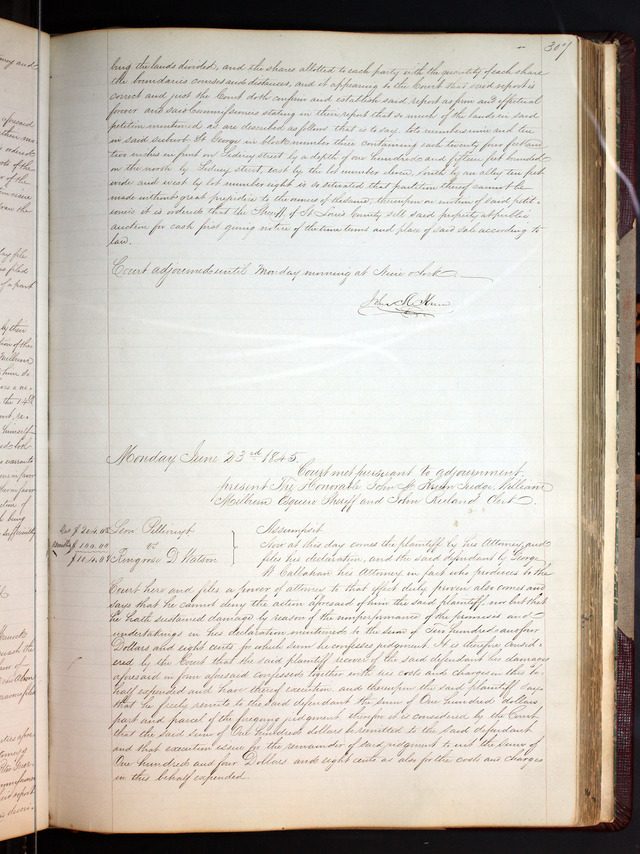 307
bing the lands divided, and the shares allotted to each party with the quantity of each share
the boundaries courses and distances, and it appearing to the Court that said report is
correct and just the Court doth confirm and establish said report as firm and effectual
forever and said Commissioners stating in their report that so much of the lands in said
petition mentioned as are described as follows that is to say. lots numbers nine and ten
in said suburb St George in block number three containing each twenty four feet and
two inches in front on Sidney street by a depth of one hundred and fifteen feet bounded
on the north by Sidney street, east by the lot number eleven, south by an alley ten feet
wide and west by lot number eight is so situated that partition thereof cannot be
made without great prejudice to the owners of the same, thereupon on motion of said petit-
ioners it is ordered that the Sheriff of St Louis County sell said property at public
auction for cash first giving notice of the time terms and place of said sale according to
law.
Court adjourned until Monday morning at Nine o'clock
John M. Krum
Monday June 23rd 1845.
Court met pursuant to adjournment,
present The Honorable John M Krum Judge, William
Milburn Esquire Sheriff and John Ruland Clerk.
$204.08
$100.00
$104.08
Levi Pettengill
vs
Ringrose D Watson
Assumpsit
Now at this day comes the plaintiff by his Attorney and
files his declaration, and the said defendant by George
W Callahan his Attorney in fact who produces to the
Court here and files a power of attorney to that effect duly proven also comes and
says that he cannot deny the action aforesaid of him the said plaintiff, nor but that
he hath sustained damages by reason of the nonperformance of the promises and
undertakings in his declaration mentioned to the sum of Two hundred and four
Dollars and eight cents for which sum he confesses judgment. It is therefore consid-
ered by the Court that the said plaintiff recover of the said defendant his damages
aforesaid in form aforesaid confessed together with his costs and charges in this be-
half expended and have thereof execution and thereupon the said plaintiff says
that he freely remits to the said defendant the sum of One hundred dollars
part and parcel of the foregoing judgment therefore it is considered by the Court
that the said sum of One hundred dollars be remitted to the said defendant
and that execution issue for the remainder of said judgment to wit the sum of
One hundred and four Dollars and eight cents as also for the costs and charges
in this behalf expended.